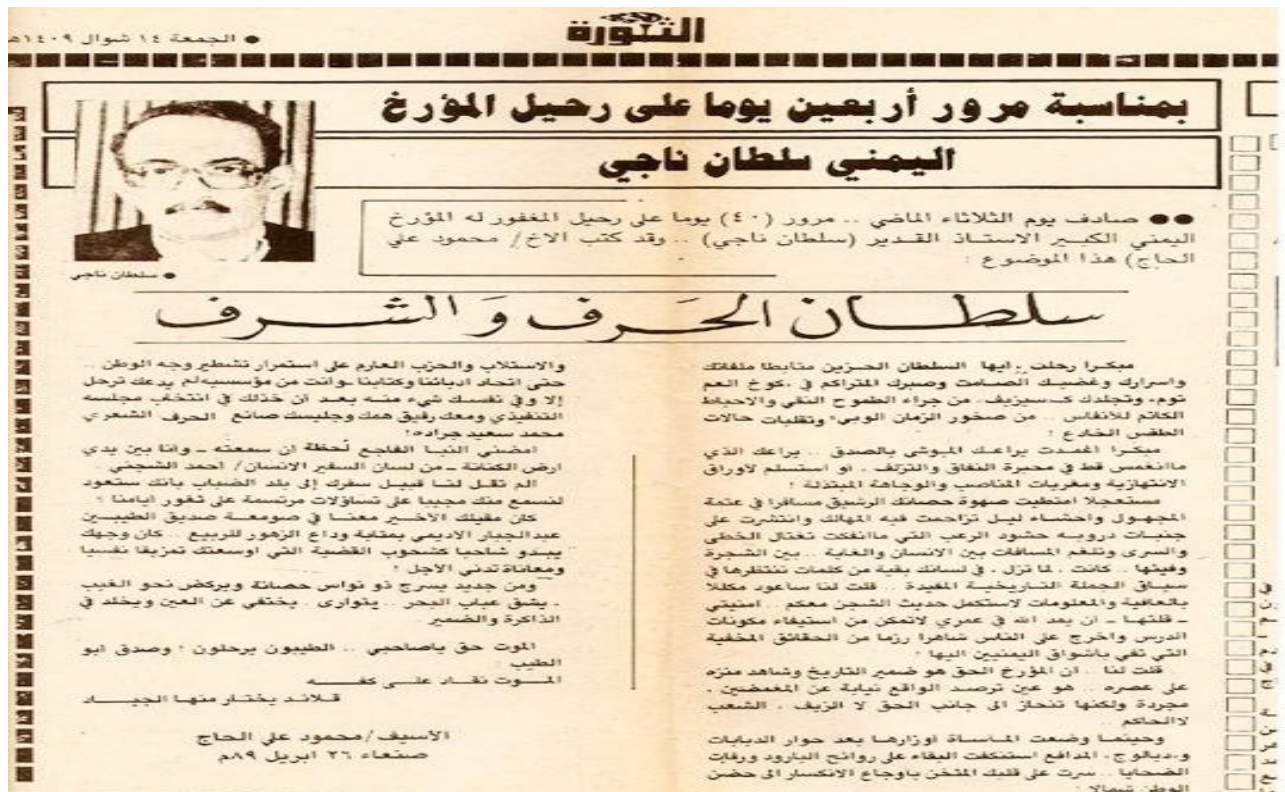 الثورة
● الجمعة ١٤ شوال ١٤٠٩هـ
بمناسبة مرور أربعين يوما على رحيل المؤرخ
اليمني سلطان ناجي
●● صادف يوم الثلاثاء الماضي .. مرور (٤٠) يوما على رحيل المغفور له المؤرخ
اليمني الكبير الاستاذ القدير (سلطان ناجي) .. وقد كتب الاخ/ محمود علي
الحاج) هذا الموضوع :
● سلطان ناجي
سلطان الحَرف وَ الشرف
مبكرا رحلت ايها السلطان الحزين متابطا ملفاتك
واسرارك وغضبك الصامت وصبرك المتراكم في ،كوخ العم
توم، وتجلدك كـ،سيزيف، من جراء الطموح النقي والاحباط
الكاتم للانفاس .. من صخور الزمان الوبيء وتقلبات حالات
الطقس الخادع !
مبكرا اغمدت يراعك الموشى بالصدق .. يراعك الذي
ماانغمس قط في محبرة النفاق والتزلف ، او استسلم لأوراق
الانتهازية ومغريات المناصب والوجاهة المبتذلة !
مستعجلا امتطيت صهوة حصانك الرشيق مسافرا في عتمة
المجهول واحشاء ليل تزاحمت فيه المهالك وانتشرت على
جنبات دروبه حشود الرعب التي ماانفكت تغتال الخطى
والسرى وتلغم المسافات بين الانسان والغاية .. بين الشجرة
وفيئها .. كانت ، لما تزل ، في لسانك بقية من كلمات ننتظرها في
سياق الجملة التاريخية المفيدة .. قلت لنا ساعود مكللا
بالعافية والمعلومات لاستكمل حديث الشجن معكم .. امنيتي
ـ قلتها ـ ان يمد الله في عمري لاتمكن من استيفاء مكونات
الدرس واخرج على الناس شاهرا رزما من الحقائق المخفية
التي تفي باشواق اليمنيين اليها !
قلت لنا .. ان المؤرخ الحق هو ضمير التاريخ وشاهد منزه
على عصره .. هو عين ترصد الواقع نيابة عن المغمضين ،
مجردة ولكنها تنحاز الى جانب الحق لا الزيف ، الشعب
لاالحاكم ..
وحينما وضعت الماساة اوزارها بعد حوار الدبابات
و،ديالوج، المدافع استنكفت البقاء على روائح البارود ورفات
الضحايا .. سرت على قلبك المثخن باوجاع الانكسار الى حضن
الوطن شمالا !
والاستلاب والحزب العارم على استمرار تشطير وجه الوطن ..
حتى اتحاد ادبائنا وكتابنا ـ وانت من مؤسسيه لم يدعك ترحل
إلا وفي نفسك شيء منه بعد ان خذلك في انتخاب مجلسه
التنفيذي ومعك رفيق همك وجليسك صانع الحرف الشعري
محمد سعيد جراده!
امضني النبا الفاجع لحظة ان سمعته ـ وانا بين يدي
ارض الكنانة ـ من لسان السفير الانسان/ احمد الشجني .
الم تقل لنا قبيل سفرك إلى بلد الضباب بانك ستعود
لنسمع منك مجيبا على تساؤلات مرتسمة على ثغور ايامنا ؟
كان مقيلك الأخير معنا في صومعة صديق الطيبين
عبدالجبار الاديمي بمثابة وداع الزهور للربيع .. كان وجهك
يبدو شاحبا كشحوب القضية التي اوسعتك تمزيقا نفسيا
ومعاناة تدني الأجل !
ومن جديد يسرج ذو نواس حصانة ويركض نحو الغيب
، يشق عباب البحر .. يتوارى ، يختفي عن العين ويخلد في
الذاكرة والضمير .
الموت حق ياصاحبي .. الطيبون يرحلون ! وصدق ابو
الطيب :
الموت نقاد على كفه
قلائد يختار منها الجياد
الأسيف/محمود على الحاج
صنعاء ٢٦ ابريل ٨٩م